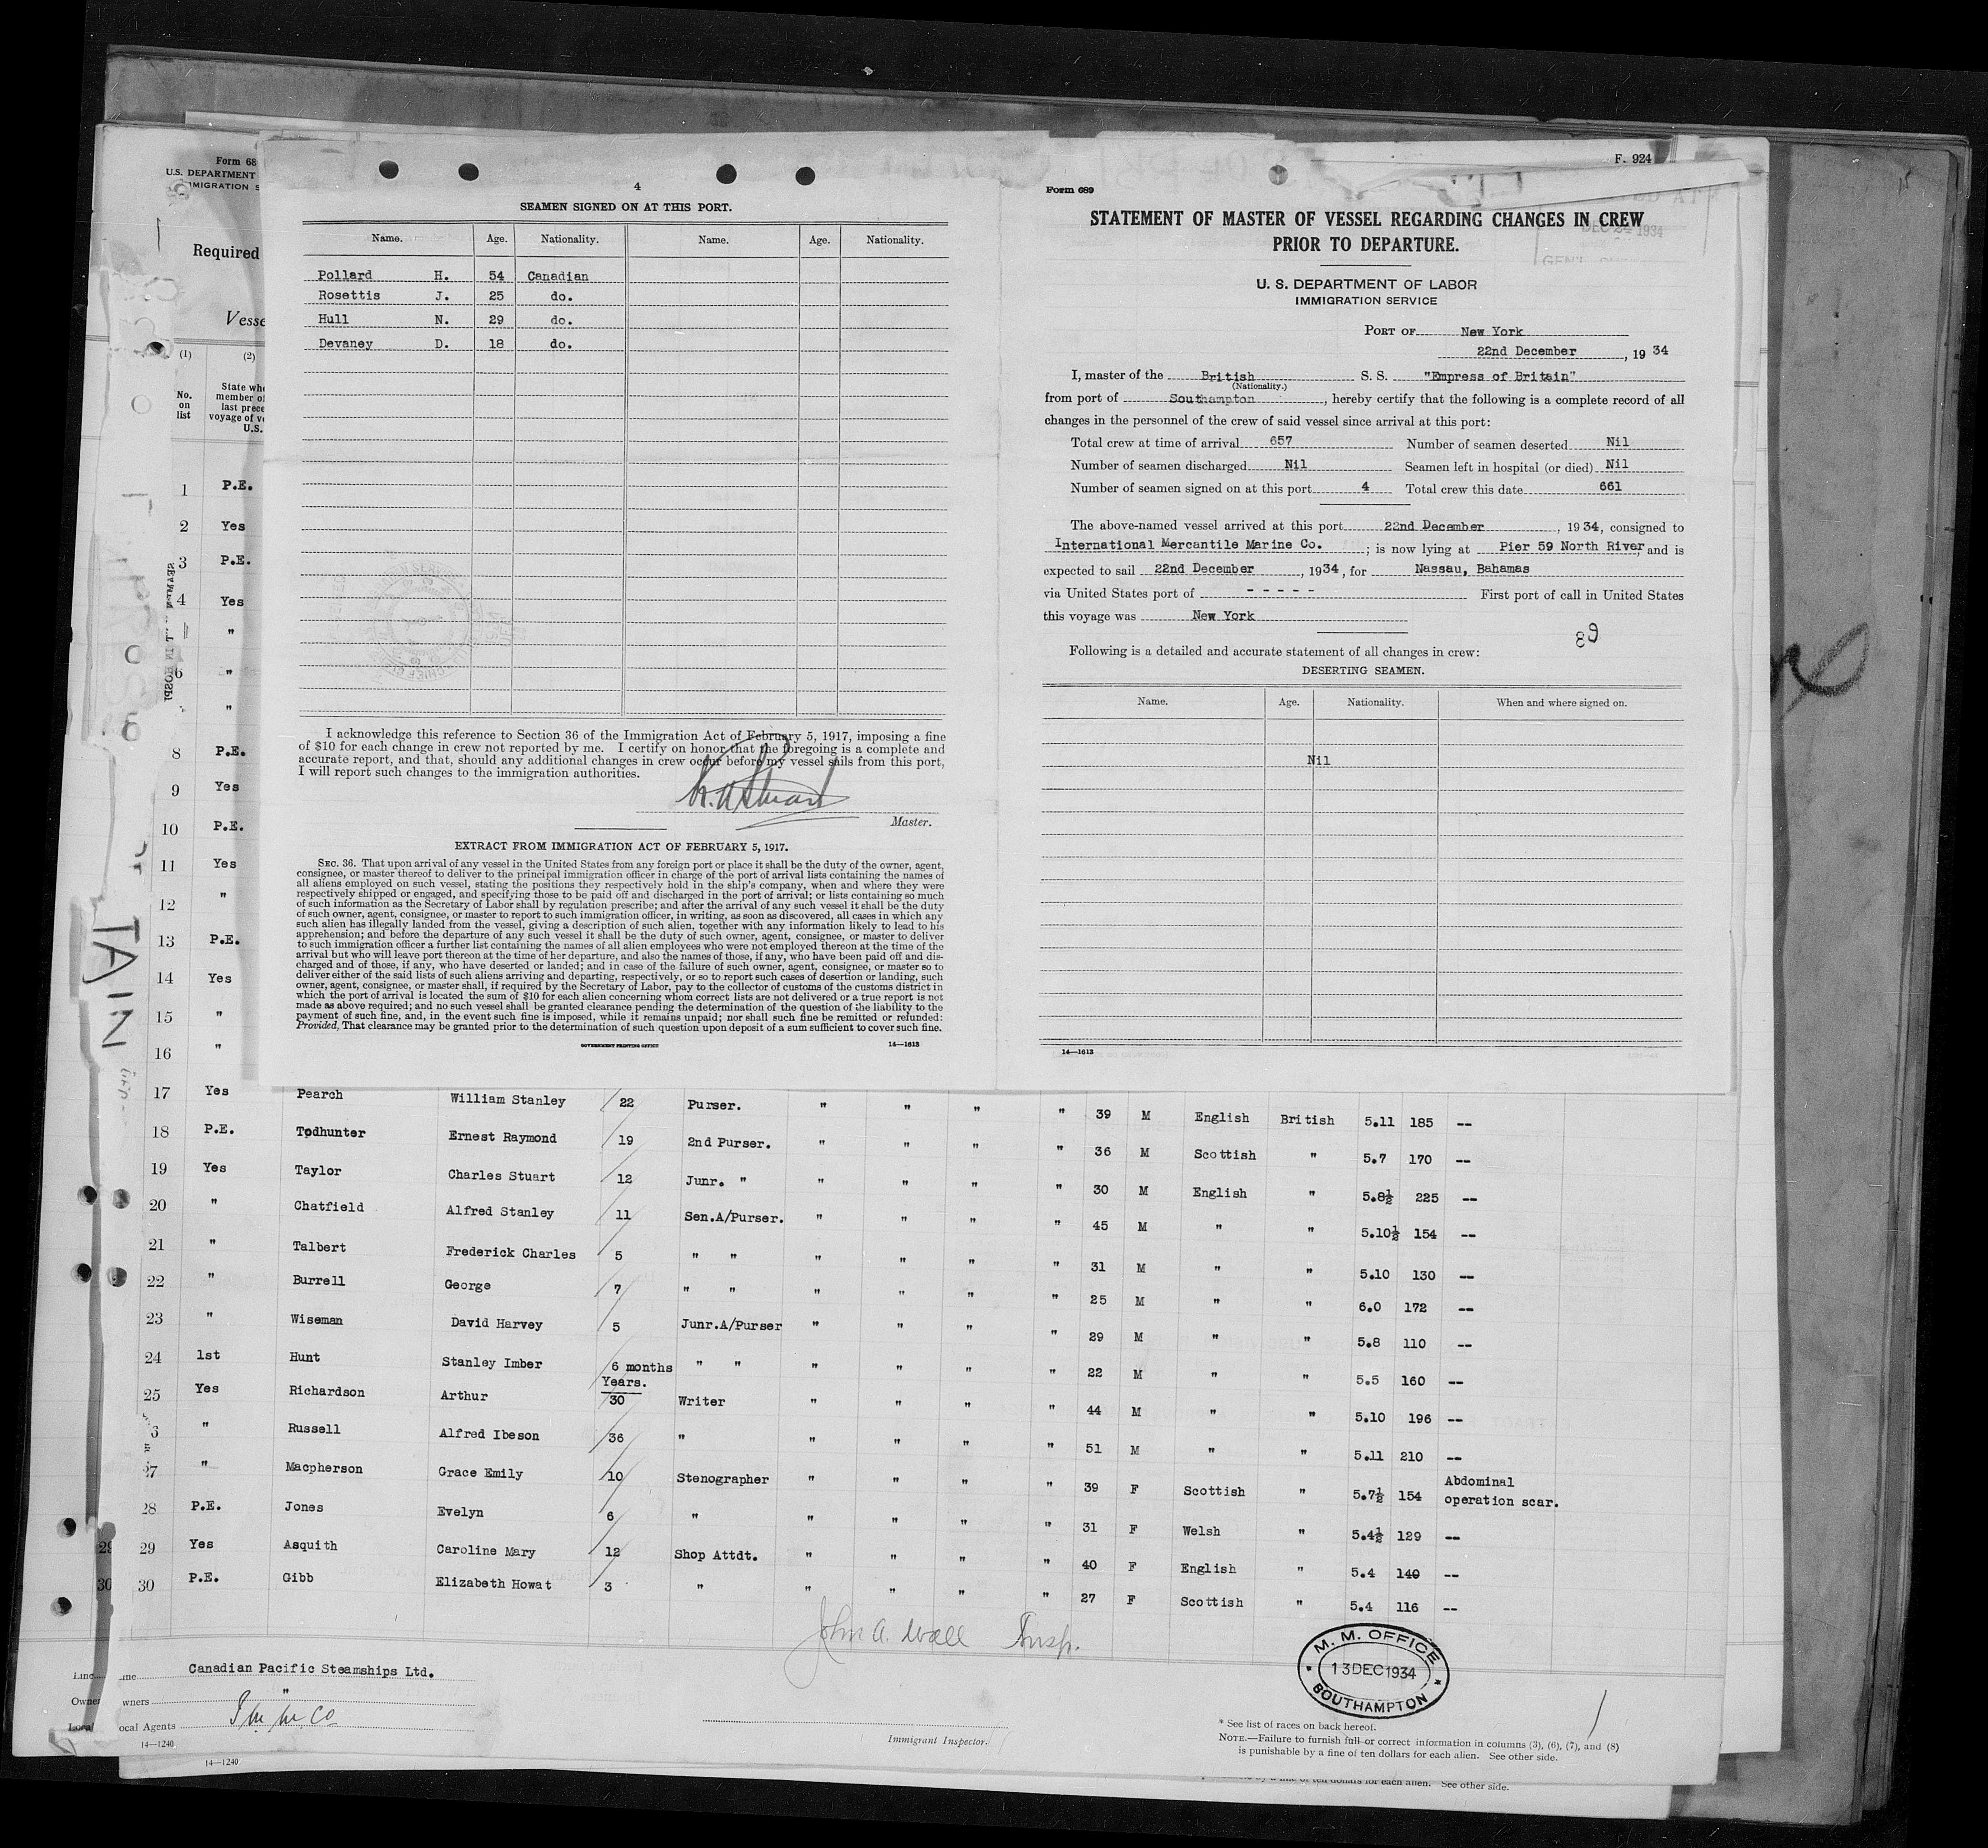 4
SEAMEN SIGNED ON AT THIS PORT.
Name. Age. Nationality. Name. Age. Nationality.
Pollard H. 54 Canadian
Rosettis J. 25 do.
Hull N. 29 do.
Devaney D. 18 do.
I acknowledge this reference to Section 36 of the Immigration Act of February 5, 1917, imposing a fine
of $10 for each change in crew not reported by me. I certify on honor that the foregoing is a complete and
accurate report, and that, should any additional changes in crew occur before my vessel sails from this port,
I will report such changes to the immigration authorities.
Master.
EXTRACT FROM IMMIGRATION ACT OF FEBRUARY 5, 1917.
SEC. 36. That upon arrival of any vessel in the United States from any foreign port or place it shall be the duty of the owner, agent,
consignee, or master thereof to deliver to the principal immigration officer in charge of the port of arrival lists containing the names of
all aliens employed on such vessel, stating the positions they respectively hold in the ship's company, when and where they were
respectively shipped or engaged, and specifying those to be paid off and discharged in the port of arrival; or lists containing so much
of such information as the Secretary of Labor shall by regulation prescribe; and after the arrival of any such vessel it shall be the duty
of such owner, agent, consignee, or master to report to such immigration officer, in writing, as soon as discovered, all cases in which any
such alien has illegally landed from the vessel, giving a description of such alien, together with any information likely to lead to his
apprehension; and before the departure of any such vessel it shall be the duty of such owner, agent, consignee, or master to deliver
to such immigration officer a further list containing the names of all alien employees who were not employed thereon at the time of the
arrival but who will leave port thereon at the time of her departure, and also the names of those, if any, who have been paid off and dis-
charged and of those, if any, who have deserted or landed; and in case of the failure of such owner, agent, consignee, or master so to
deliver either of the said lists of such aliens arriving and departing, respectively, or so to report such cases of desertion or landing, such
owner, agent, consignee, or master shall, if required by the Secretary of Labor, pay to the collector of customs of the customs district in
which the port of arrival is located the sum of $10 for each alien concerning whom correct lists are not delivered or a true report is not
made as above required; and no such vessel shall be granted clearance pending the determination of the question of the liability to the
payment of such fine, and, in the event such fine is imposed, while it remains unpaid; nor shall such fine be remitted or refunded:
Provided, That clearance may be granted prior to the determination of such question upon deposit of a sum sufficient to cover such fine.
GOVERNMENT PRINTING OFFICE 14—1613
F. 924
Form 689
STATEMENT OF MASTER OF VESSEL REGARDING CHANGES IN CREW
PRIOR TO DEPARTURE.
U. S. DEPARTMENT OF LABOR
IMMIGRATION SERVICE
PORT OF New York
22nd December, 1934
I, master of the British S. S. "Empress of Britain"
(Nationality.)
from port of Southampton, hereby certify that the following is a complete record of all
changes in the personnel of the crew of said vessel since arrival at this port:
Total crew at time of arrival 657 Number of seamen deserted Nil
Number of seamen discharged Nil Seamen left in hospital (or died) Nil
Number of seamen signed on at this port 4 Total crew this date 661
The above-named vessel arrived at this port 22nd December, 1934, consigned to
International Mercantile Marine Co.; is now lying at Pier 59 North River, and is
expected to sail 22nd December, 1934, for Nassau, Bahamas
via United States port of - - - - - First port of call in United States
this voyage was New York
89
Following is a detailed and accurate statement of all changes in crew:
DESERTING SEAMEN.
Name. Age. Nationality. When and where signed on.
Nil
14—1613
Form 68
U.S. DEPARTMENT
IMMIGRATION S
Required
Vesse
(1) (2)
No. on list
State whe
member of
last prece
voyage of ve
U.S.
1 P.E.
2 Yes
3 P.E.
4 Yes
"
6 "
"
8 P.E.
9 Yes
10 P.E.
11 Yes
12 "
13 P.E.
14 Yes
15 "
16 "
TAIN
17 Yes Pearch William Stanley 22 Purser. " " " " 39 M English British 5.11 185 --
18 P.E. Todhunter Ernest Raymond 19 2nd Purser. " " " " 36 M Scottish " 5.7 170 --
19 Yes Taylor Charles Stuart 12 Junr. " " " " " 30 M English " 5.8½ 225 --
20 " Chatfield Alfred Stanley 11 Sen.A/Purser. " " " " 45 M " " 5.10½ 154 --
21 " Talbert Frederick Charles 5 " " " " " " 31 M " " 5.10 130 --
22 " Burrell George 7 " " " " " " 25 M " " 6.0 172 --
23 " Wiseman David Harvey 5 Junr.A/Purser " " " " 29 M " " 5.8 110 --
24 1st Hunt Stanley Imber 6 months " " " " " " 22 M " " 5.5 160 --
Years.
25 Yes Richardson Arthur 30 Writer " " " " 44 M " " 5.10 196 --
6 " Russell Alfred Ibeson 36 " " " " " 51 M " " 5.11 210 --
27 " Macpherson Grace Emily 10 Stenographer " " " " 39 F Scottish " 5.7½ 154 Abdominal
operation scar.
28 P.E. Jones Evelyn 6 " " " " " 31 F Welsh " 5.4½ 129 --
29 Yes Asquith Caroline Mary 12 Shop Attdt. " " " " 40 F English " 5.4 140 --
30 P.E. Gibb Elizabeth Howat 3 " " " " " 27 F Scottish " 5.4 116 --
John A. Wall Insp.
M. M. OFFICE
13 DEC 1934
SOUTHAMPTON
Canadian Pacific Steamships Ltd.
wners "
ocal Agents I M M Co
14—1240
Immigrant Inspector.
* See list of races on back hereof.
NOTE.—Failure to furnish full or correct information in columns (3), (6), (7), and (8)
is punishable by a fine of ten dollars for each alien. See other side.
14—1240
ten dollars for each alien. See other side.